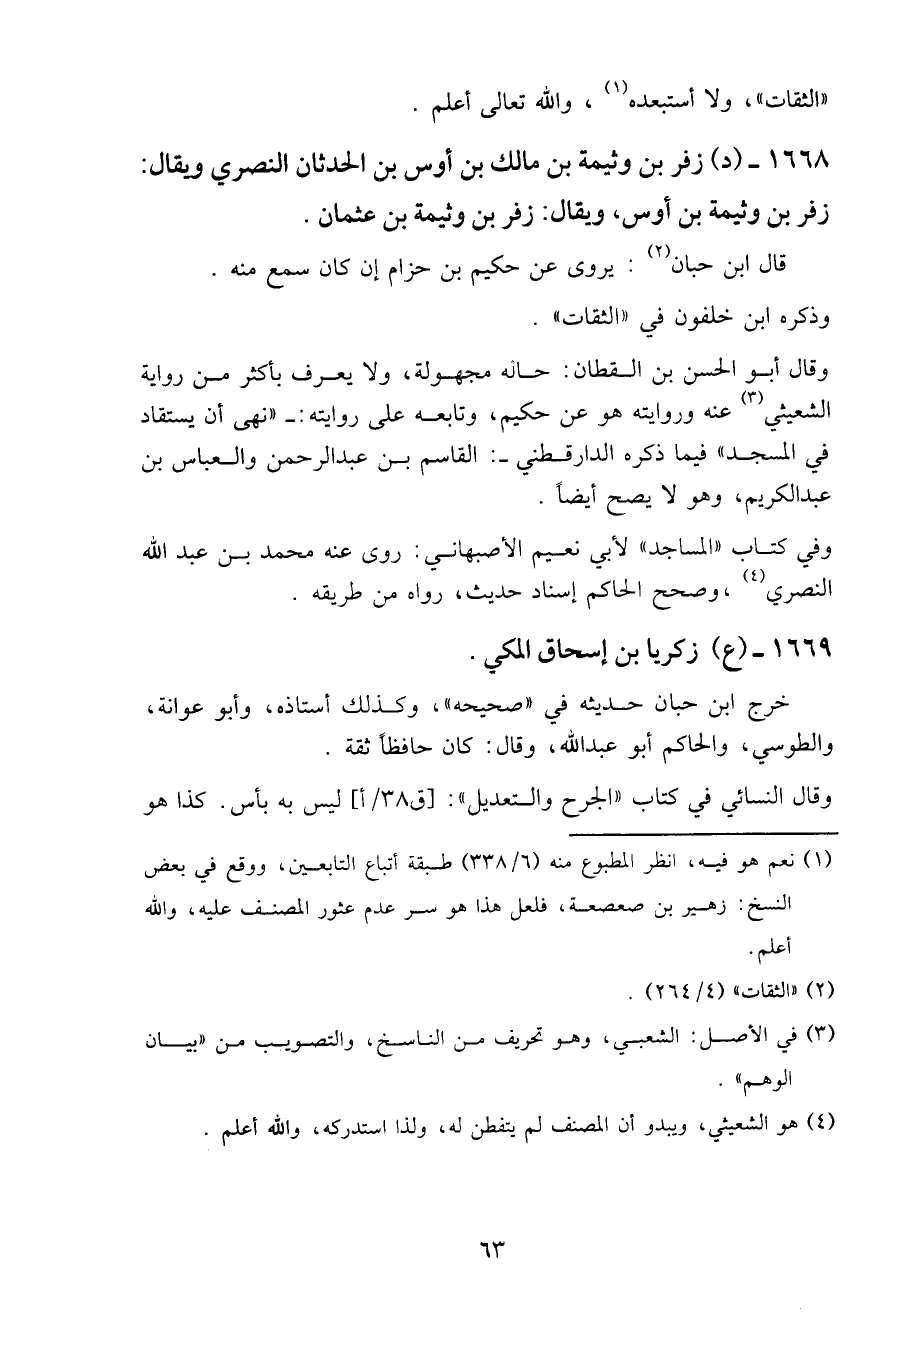 «الثقات»، ولا أستبعده(١) ، والله تعالى أعلم .
١٦٦٨ ـ (د) زفر بن وثيمة بن مالك بن أوس بن الحدثان النصري ويقال:
زفر بن وثيمة بن أوس، ويقال: زفر بن وثيمة بن عثمان .
قال ابن حبان(٢) : يروى عن حكيم بن حزام إن كان سمع منه .
وذكره ابن خلفون في «الثقات» .
وقال أبو الحسن بن القطان: حاله مجهولة، ولا يعرف بأكثر من رواية
الشعيثي(٣) عنه وروايته هو عن حكيم، وتابعه على روايته:ـ «نهى أن يستقاد
في المسجد» فيما ذكره الدارقطني ـ: القاسم بن عبدالرحمن والعباس بن
عبدالكريم، وهو لا يصح أيضاً .
وفي كتاب «المساجد» لأبي نعيم الأصبهاني: روى عنه محمد بن عبد الله
النصري(٤) ،وصحح الحاكم إسناد حديث، رواه من طريقه .
١٦٦٩ ـ (ع) زكريا بن إسحاق المكي .
خرج ابن حبان حديثه في «صحيحه»، وكذلك أستاذه، وأبو عوانة،
والطوسي، والحاكم أبو عبدالله، وقال: كان حافظاً ثقة .
وقال النسائي في كتاب «الجرح والتعديل»: [ق٣٨/ أ] ليس به بأس. كذا هو
(١) نعم هو فيه، انظر المطبوع منه (٦/ ٣٣٨) طبقة أتباع التابعين، ووقع في بعض
النسخ: زهير بن صعصعة، فلعل هذا هو سر عدم عثور المصنف عليه، والله
أعلم.
(٢) «الثقات» (٤/ ٢٦٤) .
(٣) في الأصل: الشعبي، وهو تحريف من الناسخ، والتصويب من «بيان
الوهم» .
(٤) هو الشعيثي، ويبدو أن المصنف لم يتفطن له، ولذا استدركه، والله أعلم .
٦٣